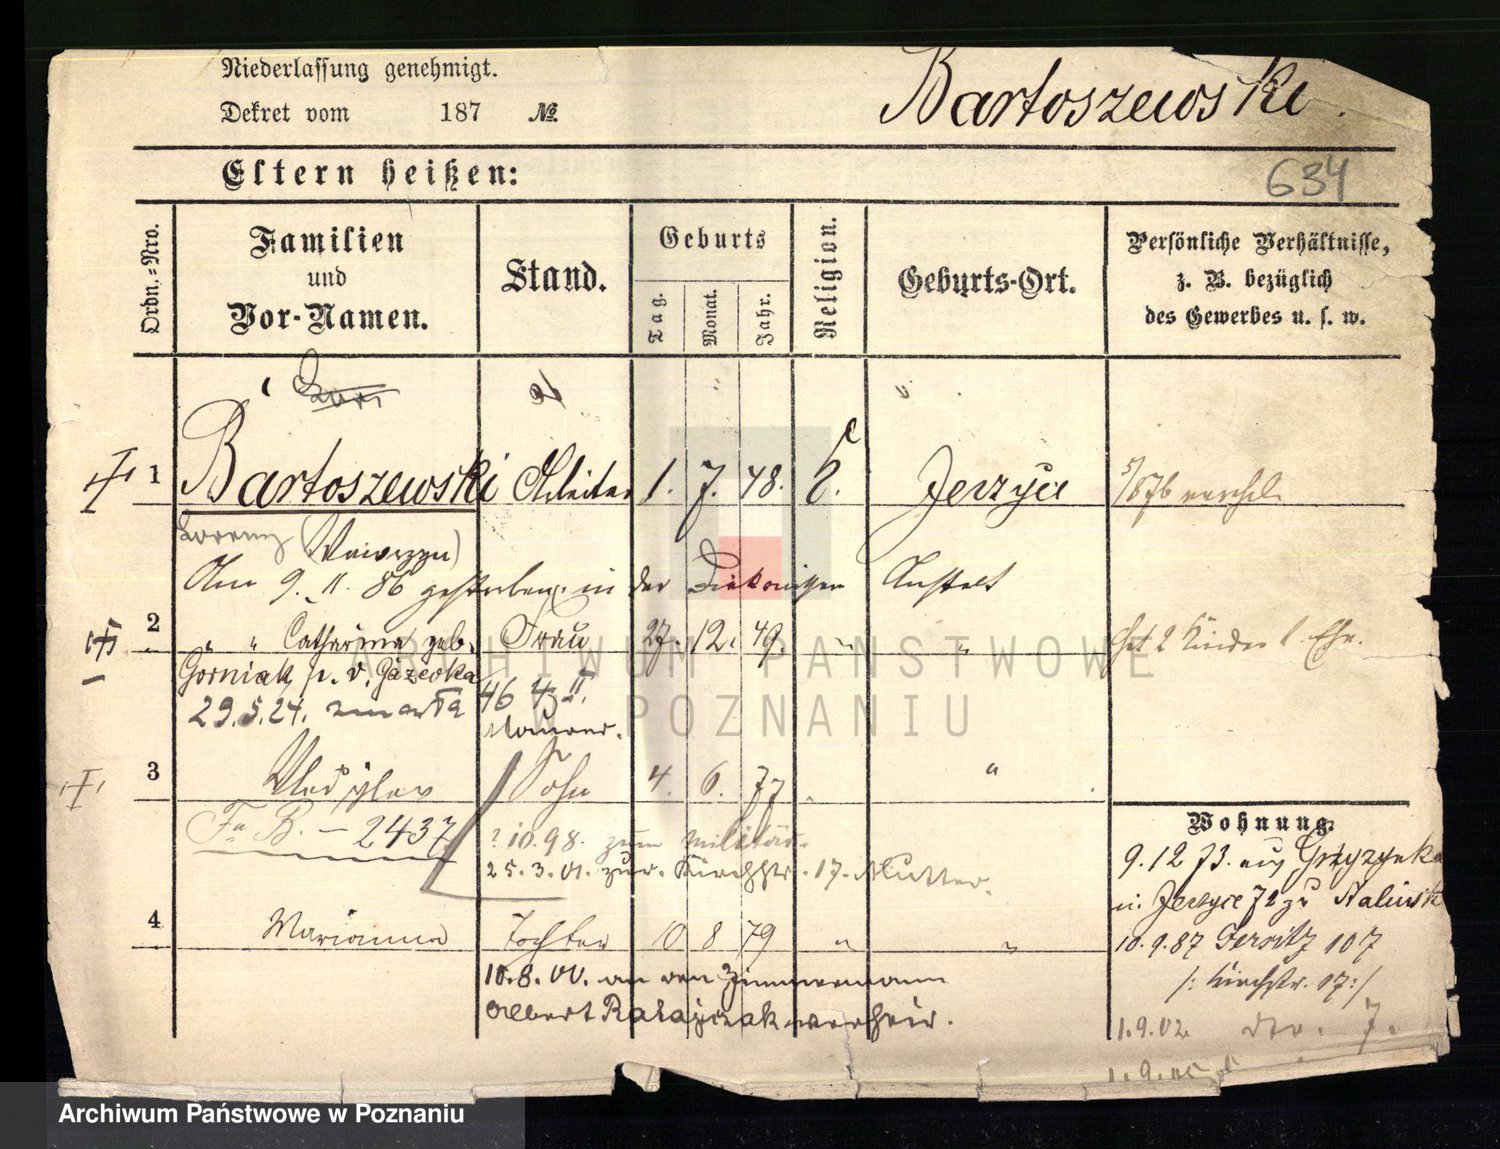 Niederlassung genehmigt.
Dekret vom 187 №
Bartoszewski.
634
Eltern heißen:
Ordn.-Nro.
Familien und Vor-Namen.
Stand.
Geburts
Tag. Monat. Jahr.
Religion.
Geburts-Ort.
Persönliche Verhältnisse, z. B. bezüglich des Gewerbes u. s. w.
1 Bartoszewski Arbeiter 1. 7. 48. Jerzyce 5/876 verehel.
Lorenz (Wawrzyn)
Am 9. 11. 86 gestorben in der Diakonissen Anstalt
2 " " Catharina geb. Frau 27. 12. 49. " " hat 2 Kinder 1. Ehe.
Gorniak, p. v. Gazecka 46 4 II
29.5.24. zmarła Maurer.
3 Wladyslav Sohn 4. 6. 77 "
Fa B. - 2437
? 10.98. zum Militär.
25.3.01. zur. Kirchstr. 17. Mutter.
4 Marianna Tochter 10 8 79 " "
10.8.00. an den Zimmermann
Albert Ratajczak verheir.
Wohnung.
9.12 73. aus
in Jerzyce 72 zu
10.9.87 Jersitz 107
/: Kirchstr. 17:/
1.9.02 7.
ARCHIWUM PAŃSTWOWE
W POZNANIU
Archiwum Państwowe w Poznaniu